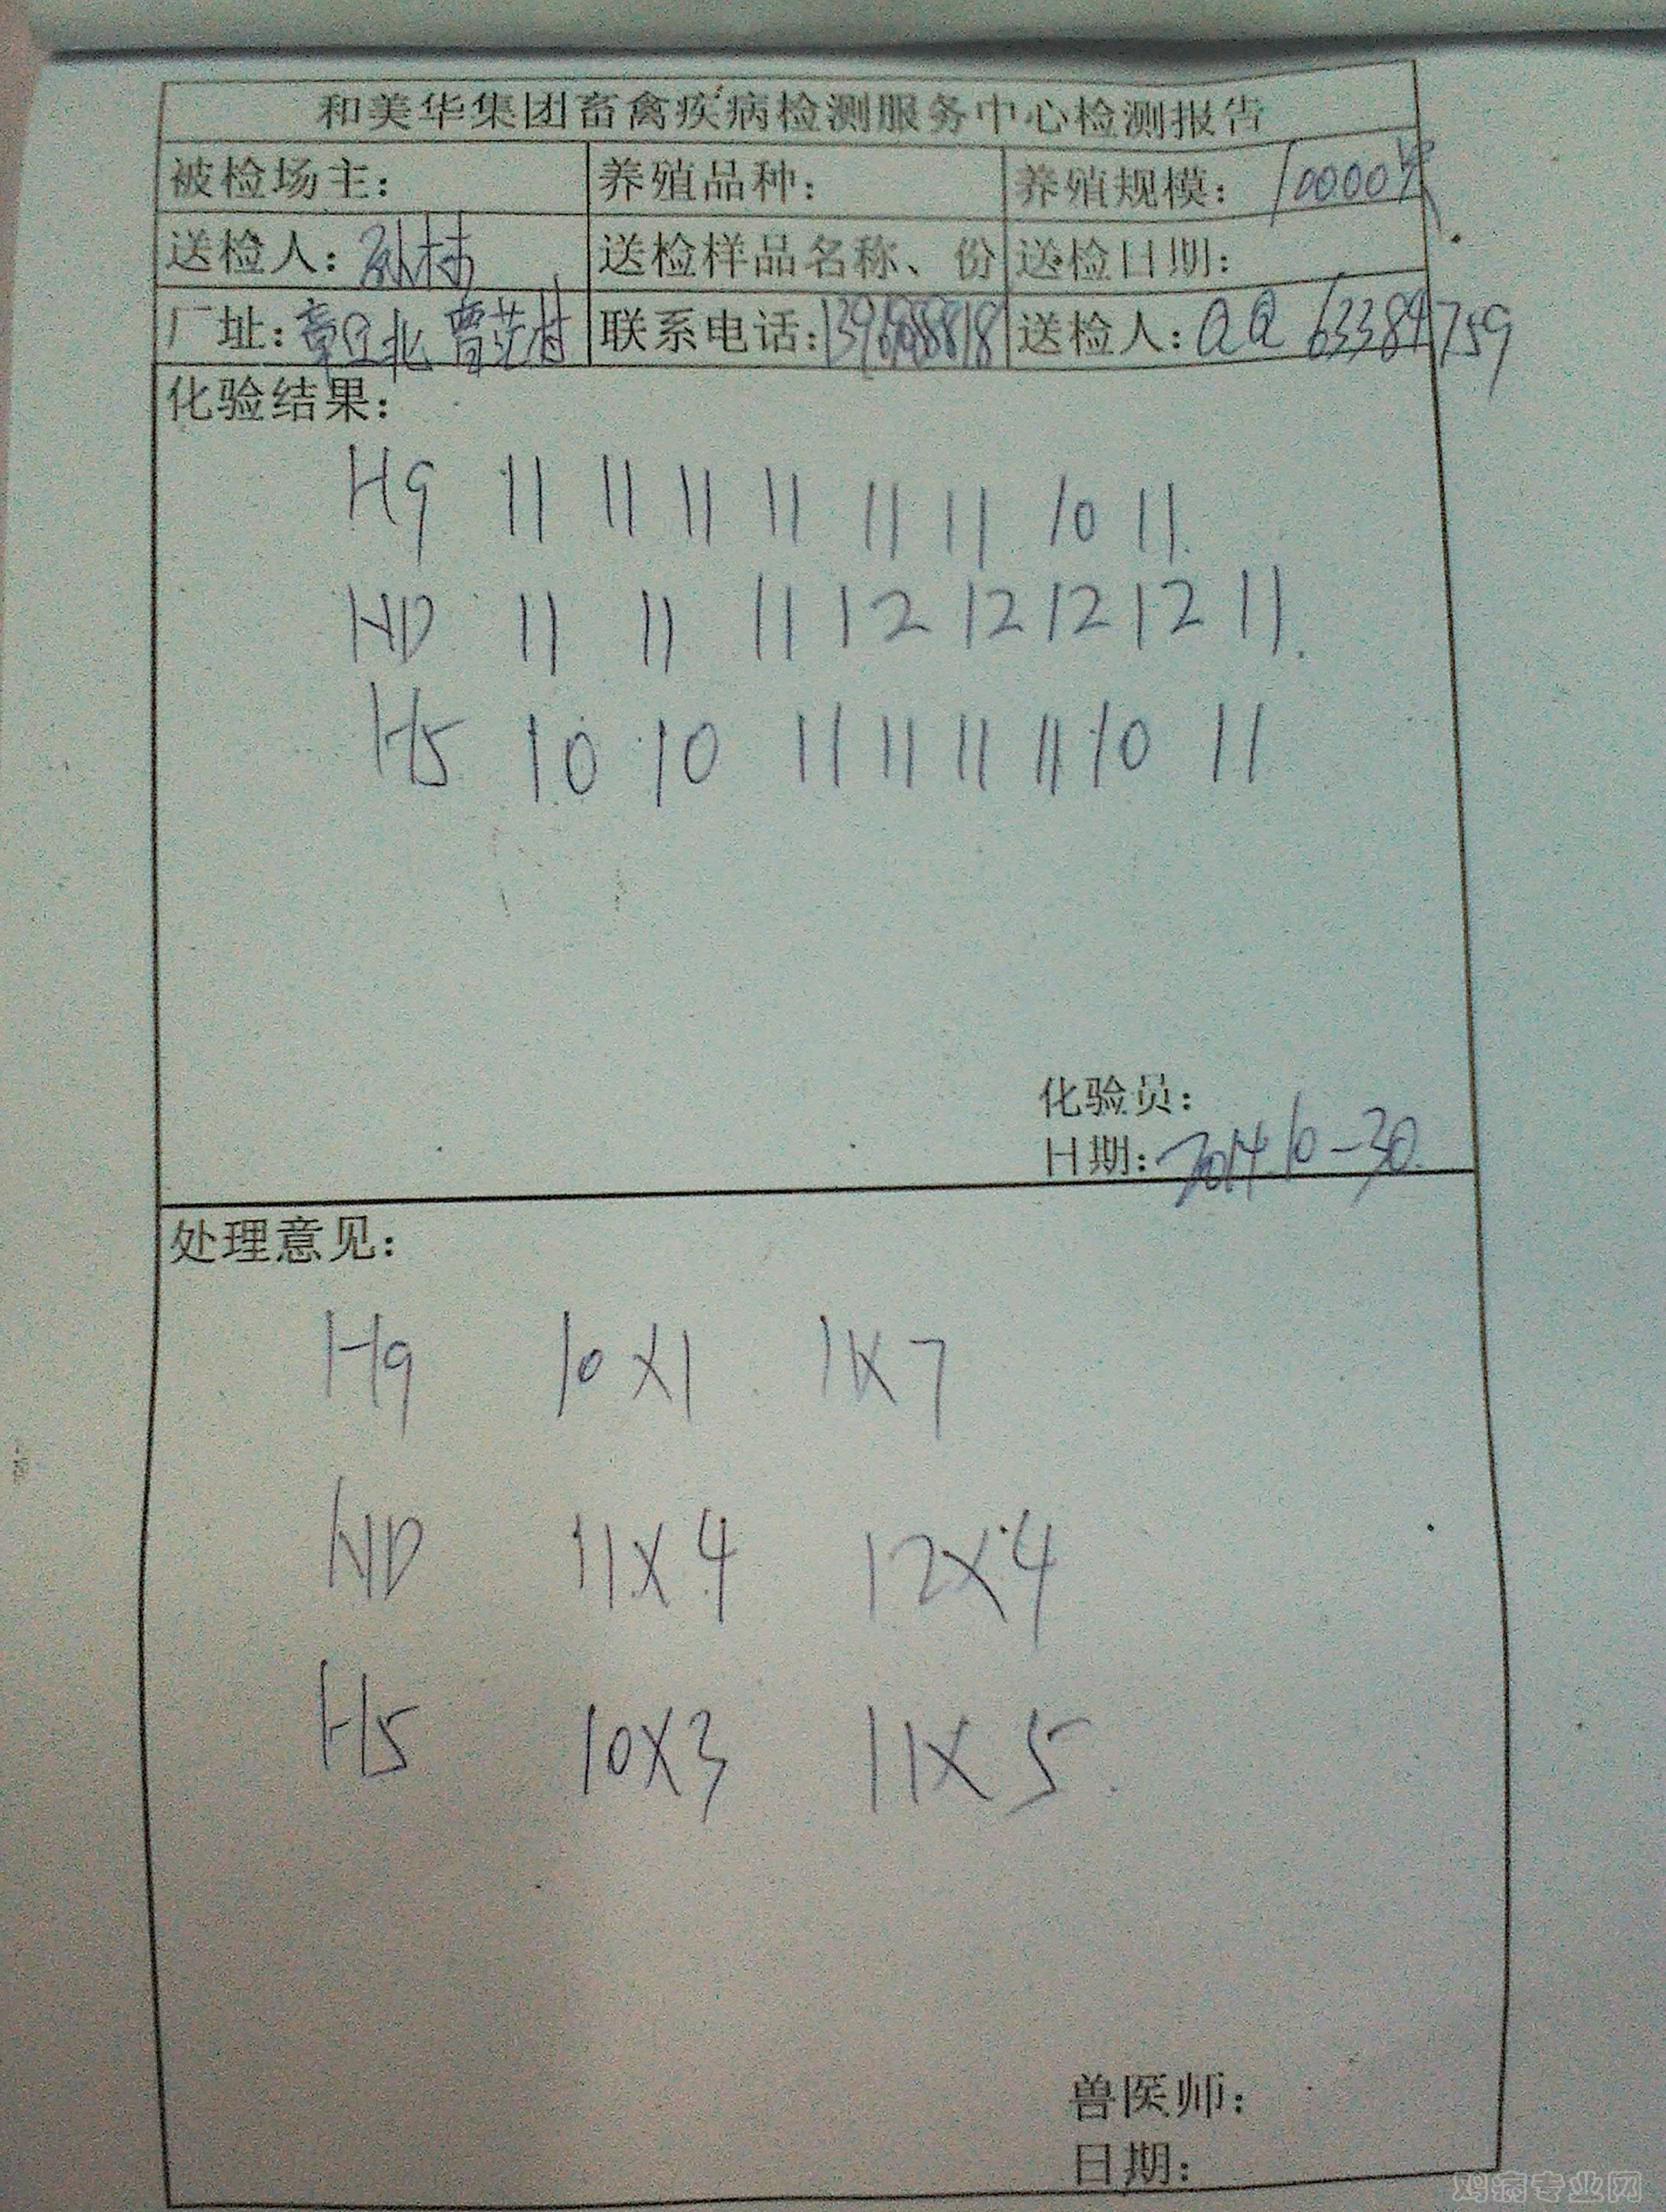 和美华集团畜禽疾病检测服务中心检测报告
被检场主： 养殖品种： 养殖规模：10000只
送检人：孙栋 送检样品名称、份 送检日期：
厂址：章丘北 曹范村 联系电话： 送检人：QQ 63384759
化验结果：
H9 11 11 11 11 11 11 10 11.
ND 11 11 11 12 12 12 12 11.
H5 10 10 11 11 11 11 10 11
化验员：
日期：2014.10-30.
处理意见：
H9 10X1 11X7
ND 11X4 12X4
H5 10X3 11X5.
兽医师：
日期：
鸡病专业网